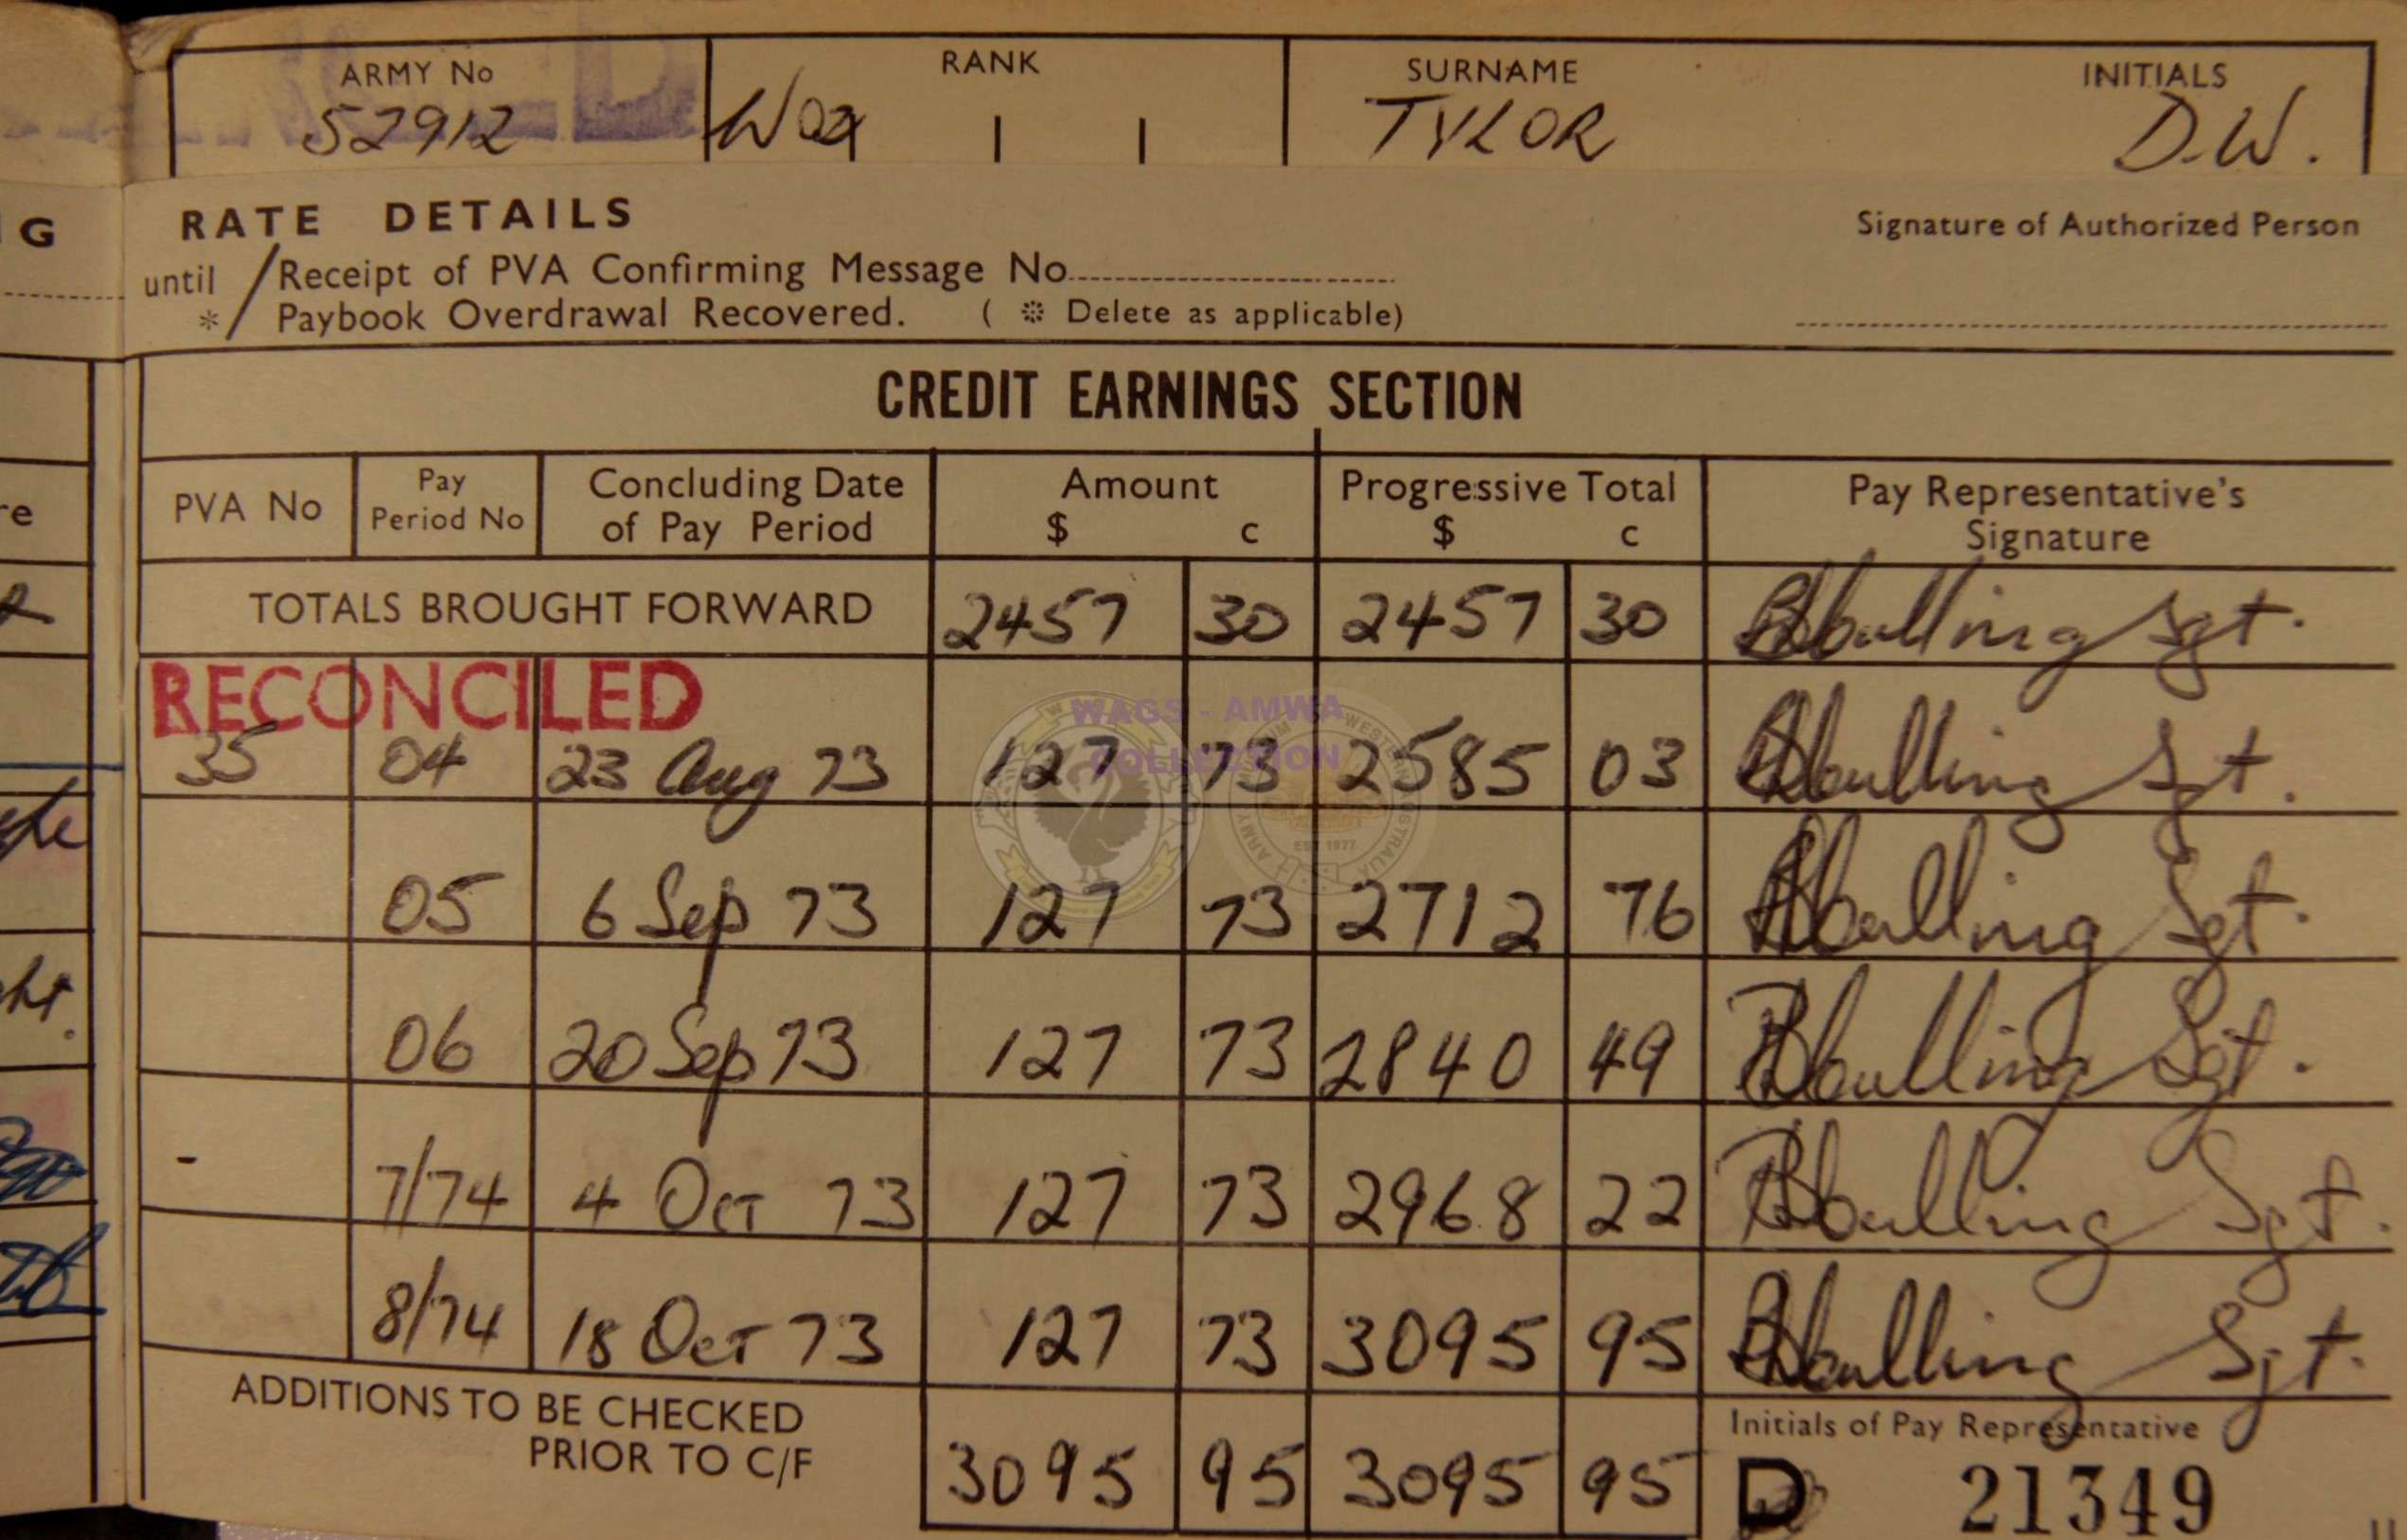 ARMY No RANK SURNAME INITIALS
52912 WO2 TYLOR D.W.
G
RATE DETAILS
Signature of Authorized Person
until / Receipt of PVA Confirming Message No
* / Paybook Overdrawal Recovered. ( * Delete as applicable)
CREDIT EARNINGS SECTION
PVA No Pay Period No Concluding Date of Pay Period Amount $ c Progressive Total $ c Pay Representative's Signature
TOTALS BROUGHT FORWARD 2457 30 2457 30 Sgt.
RECONCILED
WAGS - AMWA
COLLECTION
35 04 23 Aug 73 127 73 2585 03 Sgt.
EST 1977
05 6 Sep 73 127 73 2712 76 Sgt.
06 20 Sep 73 127 73 2840 49 Sgt.
- 7/74 4 Oct 73 127 73 2968 22 Sgt.
8/74 18 Oct 73 127 73 3095 95 Sgt.
ADDITIONS TO BE CHECKED
PRIOR TO C/F
3095 95 3095 95
Initials of Pay Representative
D 21349